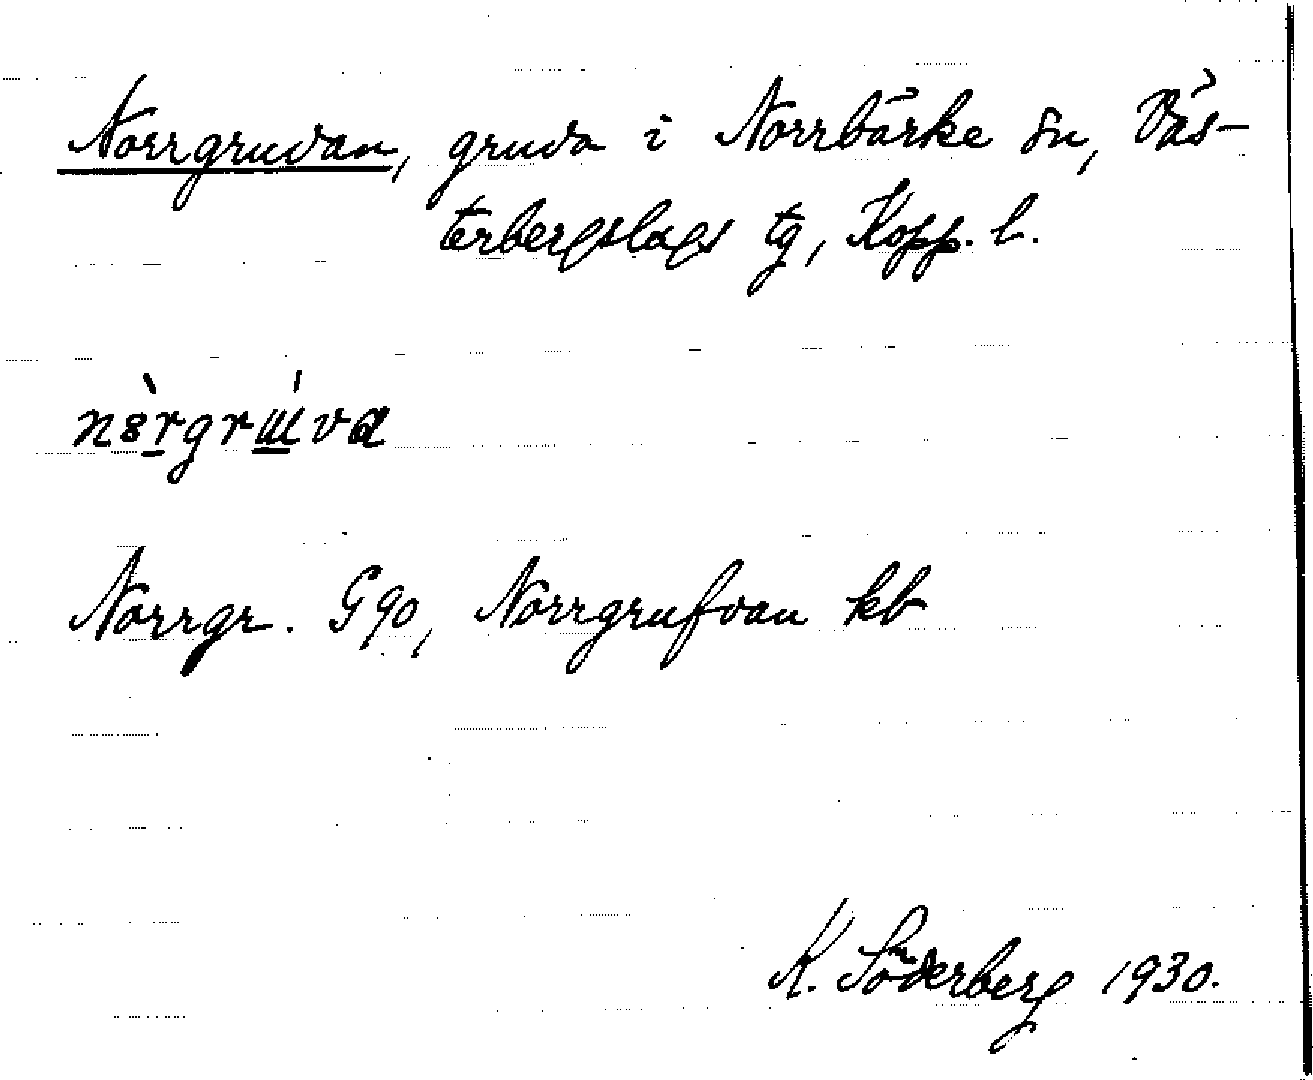 Norrgruvan, gruva i Norrbärke sn, Väs-
terbergslags tg, Kopp. l.
nòrgrúva
Norrgr. G90, Norrgrufvan kb
K. Söderberg 1930.